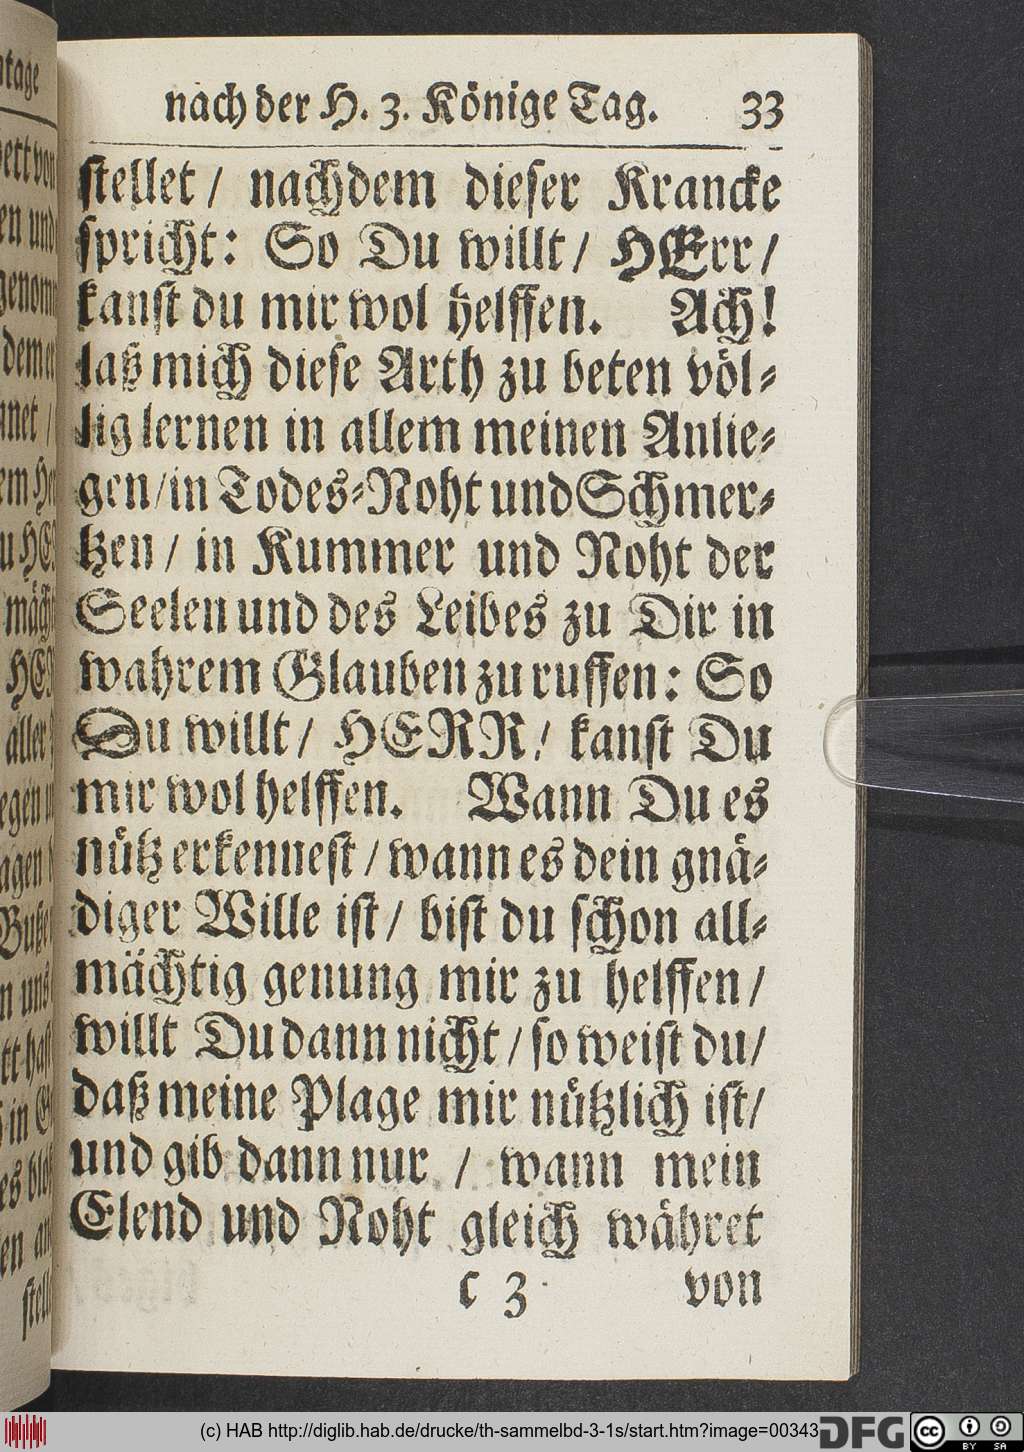 nach der H. 3. Könige Tag. 33
stellet / nachdem dieser Krancke
spricht: So Du willt / HErr /
kanst du mir wol helffen. Ach!
laß mich diese Arth zu beten völ-
lig lernen in allem meinen Anlie-
gen / in Todes-Noht und Schmer-
tzen / in Kummer und Noht der
Seelen und des Leibes zu Dir in
wahrem Glauben zu ruffen: So
Du willt / HERR / kanst Du
mir wol helffen. Wann Du es
nütz erkennest / wann es dein gnä-
diger Wille ist / bist du schon all-
mächtig genung mir zu helffen /
willt Du dann nicht / so weist du /
daß meine Plage mir nützlich ist /
und gib dann nur / wann mein
Elend und Noht gleich währet
c 3 von
(c) HAB http://diglib.hab.de/drucke/th-sammelbd-3-1s/start.htm?image=00343
DFG cc BY SA